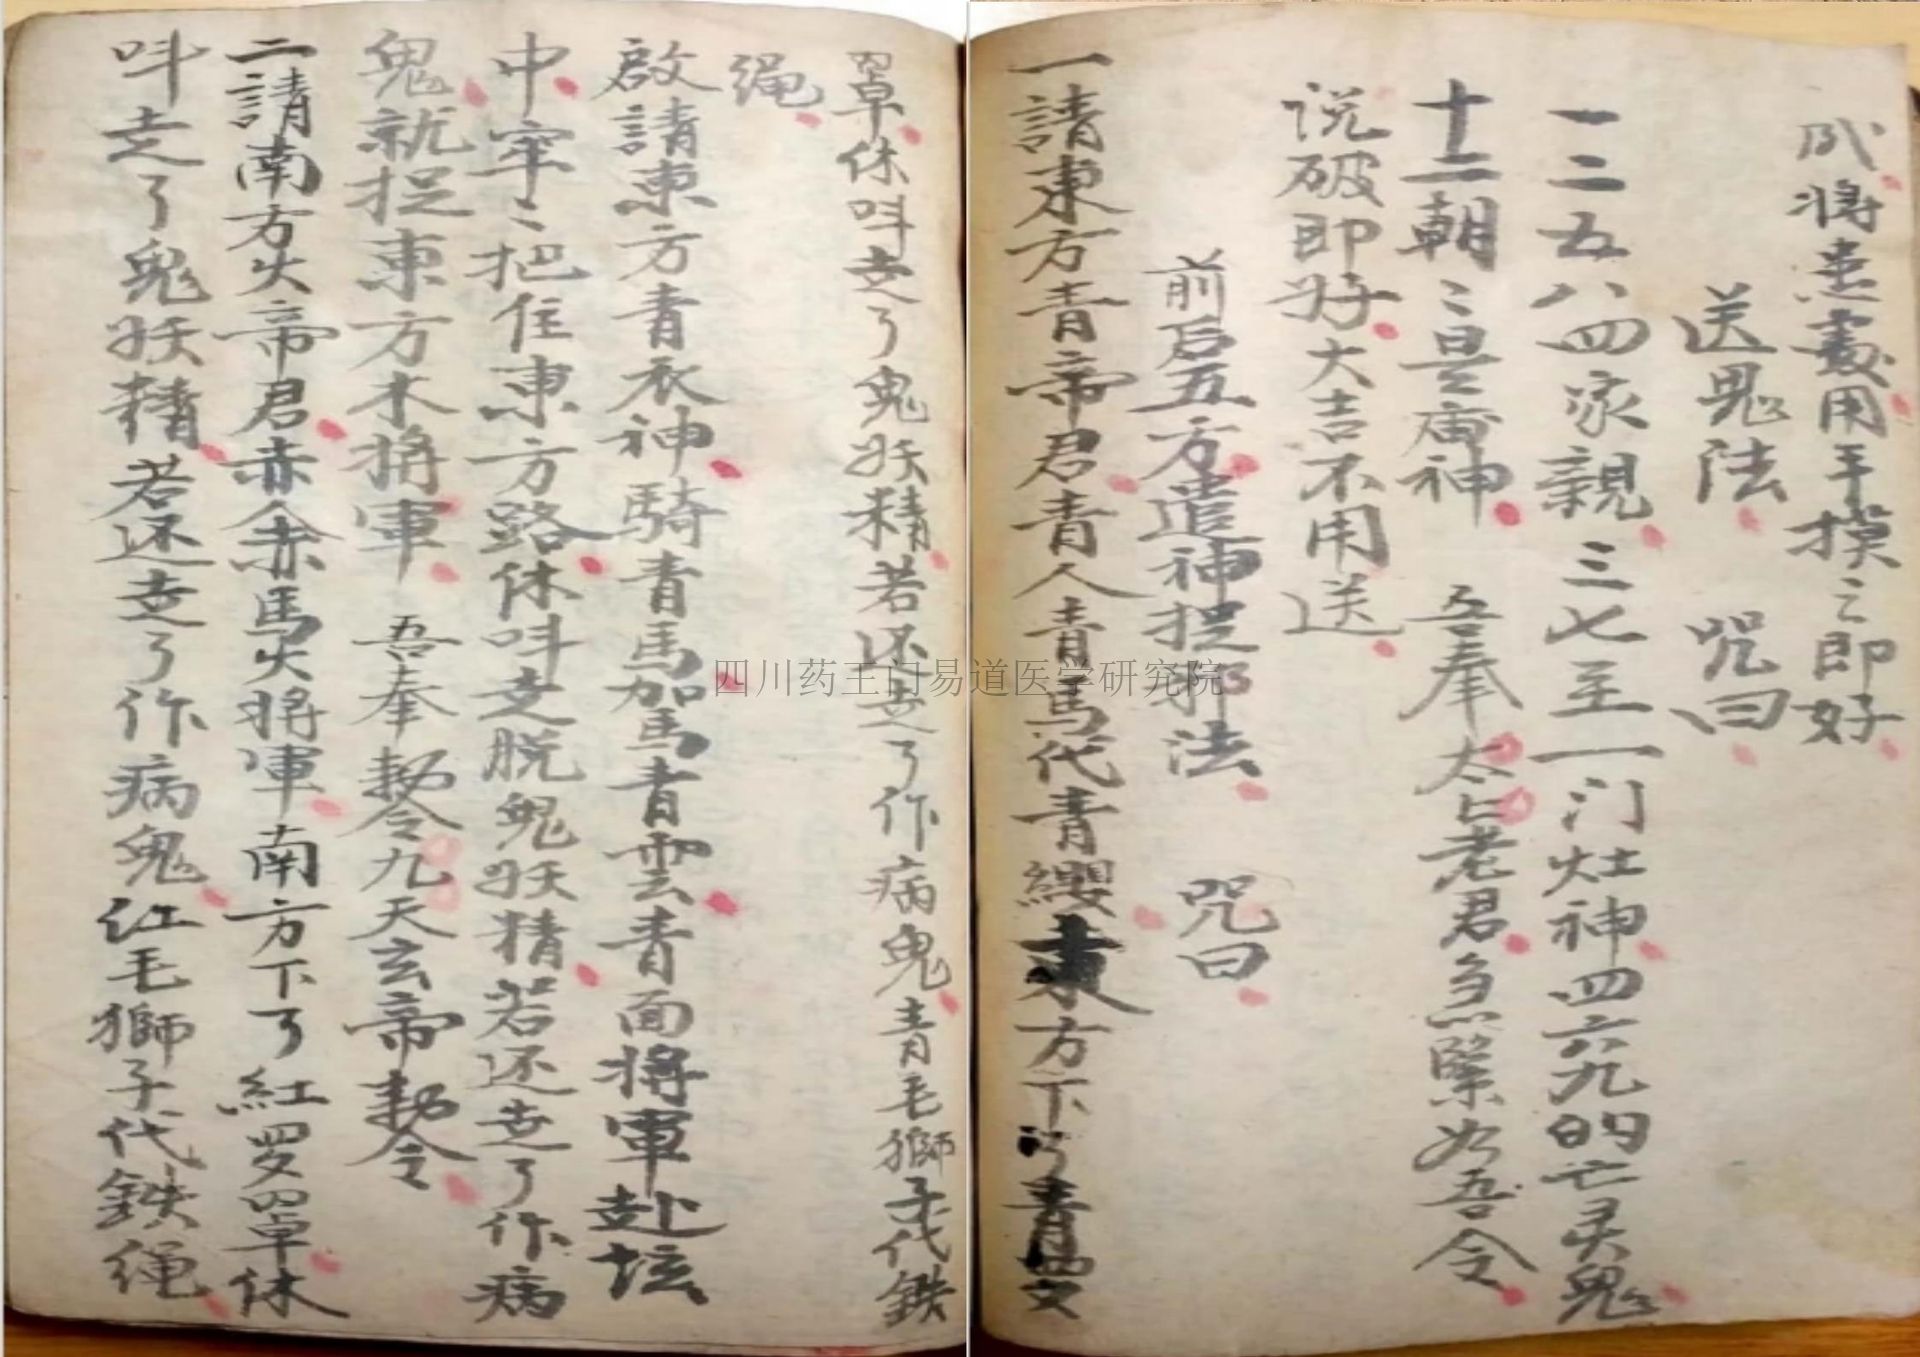 成将患處用手摸之即好
送鬼法 咒曰
一二五八四家親三七至一门灶神四六九的亡灵鬼
十二朝〻是庙神 吾奉太上老君急急緊如吾令
说破即好大吉不用送
前后五方遣神捉邪法 咒曰
一請東方青帝君青人青馬代青纓東方下了青罗
罩休呌走了鬼妖精若还走了作病鬼青毛獅子代鉄
绳
啟請東方青衣神騎青馬加馬青雲青面将軍赴坛
中牢〻把住東方路休呌走脱鬼妖精若还走了作病
鬼就捉東方木将軍 吾奉勅令九天玄帝勅令
二請南方火帝君赤余赤馬火将軍南方下了紅罗罩休
呌走了鬼妖精若还走了作病鬼红毛獅子代鉄绳
四川药王门易道医学研究院